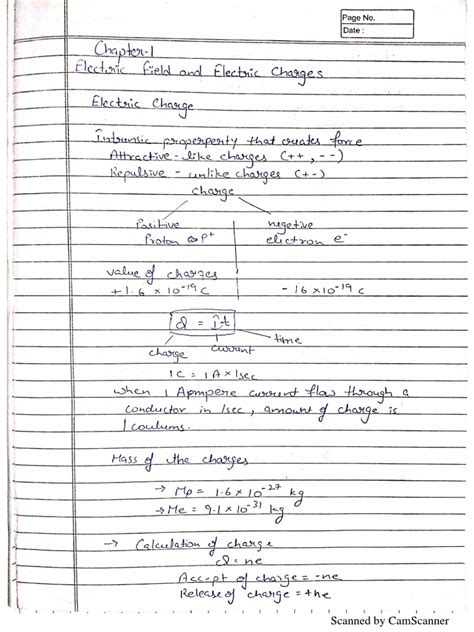 Page No.
Date :
Chapter-1
Electric field and Electric Charges
Electric Charge
Intrinsic properperty that creates force
Attractive - like charges (++ , --)
Repulsive - unlike charges (+-)
charge
Positive negetive
Proton P+ electron e-
value of charges
+1.6 × 10^-19 C - 16 × 10^-19 C
Q = It
charge current time
1C = 1A × 1sec
when 1 Apmpere current flow through a
conductor in 1sec, amount of charge is
1 coulums.
Mass of the charges
→ Mp = 1.6 × 10^-27 kg
→ Me = 9.1 × 10^-31 kg
→ Calculation of charge
Q = ne
Accept of charge = -ne
Release of charge = +ne
Scanned by CamScanner